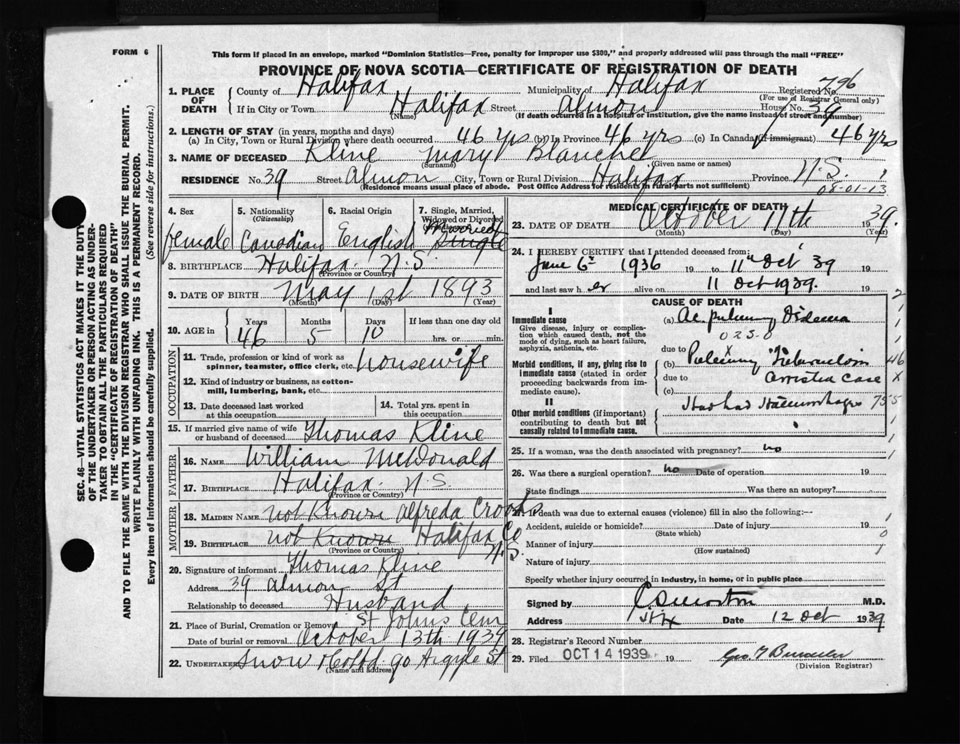 FORM 6
This form if placed in an envelope, marked "Dominion Statistics—Free, penalty for improper use $300," and properly addressed will pass through the mail "FREE"
PROVINCE OF NOVA SCOTIA—CERTIFICATE OF REGISTRATION OF DEATH
1. PLACE OF DEATH County of Halifax Municipality of Halifax Registered No. 796
(For use of Registrar General only)
If in City or Town Halifax Street Almon House No. 39
(Name) (If death occurred in a hospital or institution, give the name instead of street and number)
2. LENGTH OF STAY (in years, months and days)
(a) In City, Town or Rural Division where death occurred 46 yrs (b) In Province 46 yrs (c) In Canada (if immigrant) 46 yrs
3. NAME OF DECEASED Kline Mary Blanche
(Surname) (Given name or names)
RESIDENCE No. 39 Street Almon City, Town or Rural Division Halifax Province N.S. 1
(Residence means usual place of abode. Post Office Address for residents in rural parts not sufficient) 08-01-13
4. Sex female
5. Nationality (Citizenship) Canadian
6. Racial Origin English
7. Single, Married, Widowed or Divorced Married Single
8. BIRTHPLACE Halifax N.S.
(Province or Country)
9. DATE OF BIRTH May 1st 1893
(Month) (Day) (Year)
10. AGE in Years Months Days If less than one day old
46 5 10 hrs. or min.
OCCUPATION
11. Trade, profession or kind of work as spinner, teamster, office clerk, etc. Housewife
12. Kind of industry or business, as cotton-mill, lumbering, bank, etc.
13. Date deceased last worked at this occupation
14. Total yrs. spent in this occupation
15. If married give name of wife or husband of deceased Thomas Kline
FATHER
16. NAME William McDonald
17. BIRTHPLACE Halifax N.S.
(Province or Country)
MOTHER
18. MAIDEN NAME not Known Alfreda Crooks
19. BIRTHPLACE not Known Halifax Co N.S.
(Province or Country)
20. Signature of informant Thomas Kline
Address 39 Almon St
Relationship to deceased Husband
21. Place of Burial, Cremation or Removal St Johns Cem
Date of burial or removal October 13th 1939
22. UNDERTAKER Snow & Co Ltd 90 Argyle St
(Name and address)
MEDICAL CERTIFICATE OF DEATH
23. DATE OF DEATH October 11th 39
(Month) (Day) (Year)
24. I HEREBY CERTIFY that I attended deceased from:
June 6th 1936 19 to 11th Oct 39 19
and last saw her alive on 11 Oct 1939. 19
CAUSE OF DEATH
I
Immediate cause (a) Ac pulmony Oedema
Give disease, injury or complication which caused death, not the mode of dying, such as heart failure, asphyxia, asthenia, etc. 023.0
due to
Morbid conditions, if any, giving rise to immediate cause (stated in order proceeding backwards from immediate cause). (b) Pulmony Tuberculosis
due to arrested case
(c)
II
Other morbid conditions (if important) contributing to death but not causally related to immediate cause. Has had Haemorrhage
25. If a woman, was the death associated with pregnancy? no
26. Was there a surgical operation? no Date of operation 19
State findings Was there an autopsy?
27. If death was due to external causes (violence) fill in also the following:—
Accident, suicide or homicide? Date of injury 19
(State which)
Manner of injury
(How sustained)
Nature of injury
Specify whether injury occurred in industry, in home, or in public place
Signed by C S Morton M.D.
Address Hfx Date 12 Oct 1939
28. Registrar's Record Number
29. Filed OCT 14 1939 19
(Division Registrar)
SEC. 46—VITAL STATISTICS ACT MAKES IT THE DUTY
OF THE UNDERTAKER OR PERSON ACTING AS UNDER-
TAKER TO OBTAIN ALL THE PARTICULARS REQUIRED
IN THE "CERTIFICATE OF REGISTRATION OF DEATH"
AND TO FILE THE SAME WITH THE DIVISION REGISTRAR WHO SHALL ISSUE THE BURIAL PERMIT.
WRITE PLAINLY WITH UNFADING INK. THIS IS A PERMANENT RECORD.
Every item of information should be carefully supplied. (See reverse side for instructions.)